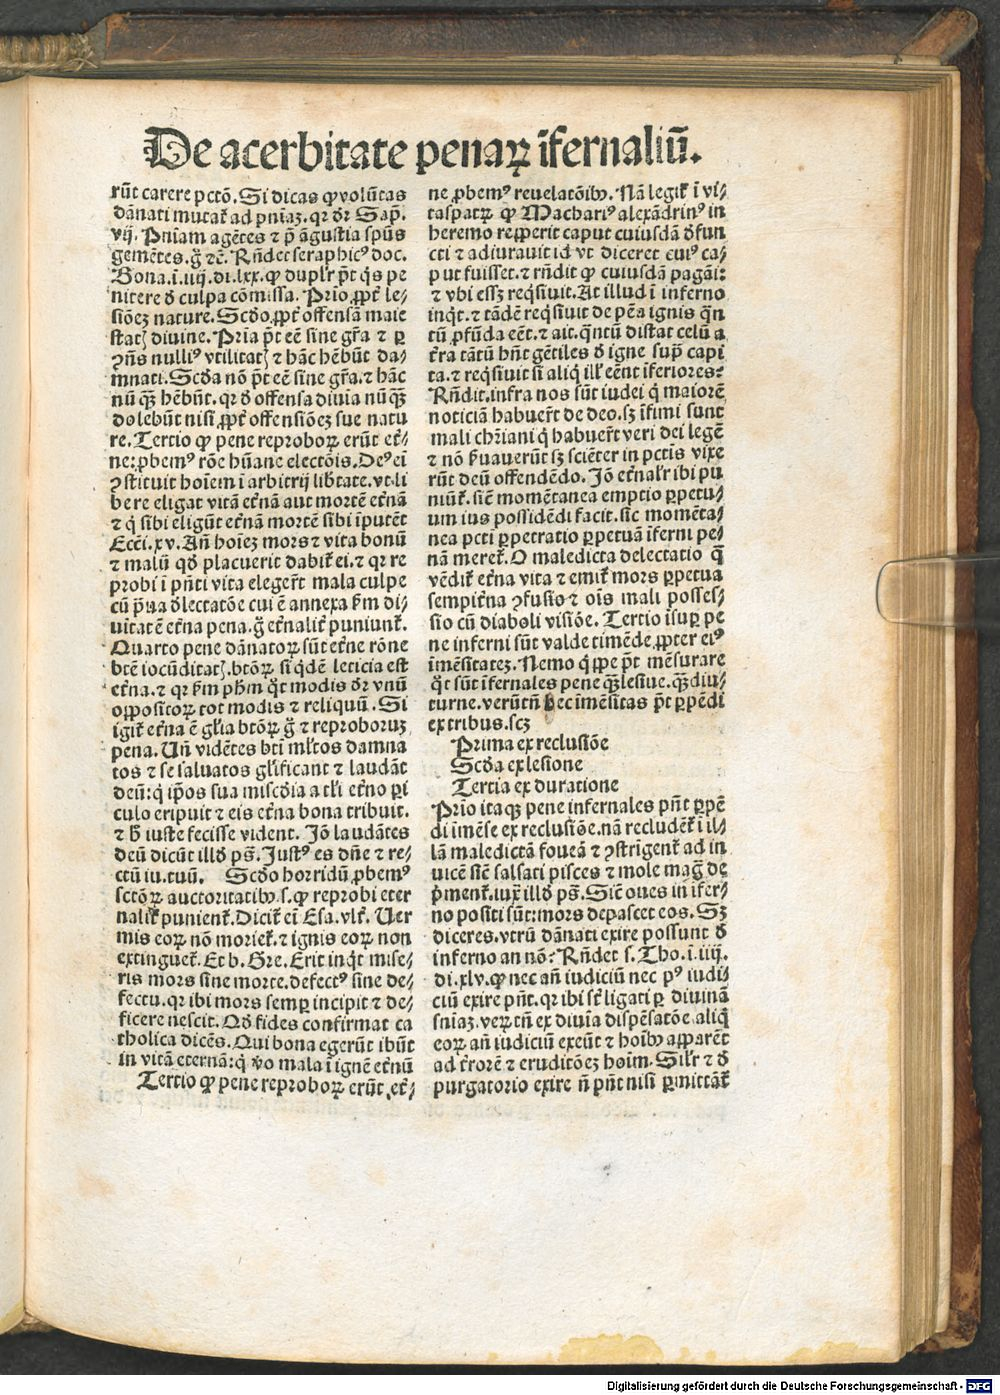 De acerbitate penaꝝ īfernaliū.
rūt carere pctō. Si dicas ꝙ volūtas
dānati mutat̄ ad pniaꝫ. qꝛ dr̄ Sap̄.
vij. Pniam agētes ⁊ p̄ āgustia spūs
gemētes. g̊ ⁊c̄. Rn̄det seraphicꝰ doc.
Bona. ī. iiij. di. lxx. ꝙ duplr̄ pn̄t qͥs pe
nitere d̄ culpa cōmissa. Prīo ꝓpt̄ le⸗
siōeꝫ nature. Scd̄o ꝓpt̄ offensā maie
statꝭ diuine. Prīa pn̄t eē sine grā ⁊ ꝑ
ꝯn̄s nulliꝰ vtilitatꝭ ⁊ hāc hn̄bt da⸗
mnati. Scd̄a nō pn̄t eē sine grā. ⁊ hāc
nū qꝫ hēbūt. qꝛ d̄ offensa diuia nūqꝫ
dolebūt nisi ꝓpt̄ offensiōeꝫ sue natu
re. Tertio ꝙ pene reproboꝝ erūt et̄⸗
ne: ꝓbemꝰ rōe hūane electōis. Deꝰ eī
ꝯstituit hoīem ī arbitrij lib̄tate. vt li
bere eligat vitā et̄nā aut mortē et̄nā
⁊ qͥ sibi eligūt et̄nā mortē sibi īputēt
Ecc̄i. xv. An̄ hoīeꝫ mors ⁊ vita bonū
⁊ malū qd̄ placuerit dabit̄ ei. ⁊ qꝛ re
probi ī pn̄ti vita elegert̄ mala culpe
cū pͣua delectatōe cui ē annexa fm̄ di⸗
uitatē et̄na pena. g̊ et̄nalit̄ puniunt̄.
Quarto pene dānatoꝝ sūt et̄ne rōne
btē iocūditatꝭ. btōꝝ si qͥdē leticia est
et̄na. ⁊ qꝛ fm̄ phm̄ qͦt modis dr̄ vnū
oppositoꝝ tot modis ⁊ reliquū. Si
igit̄ et̄na ē glīa btōꝝ g̊ ⁊ reproboruꝫ
pena. Un̄ vidētes bt̄i ml̄tos damna
tos ⁊ se saluatos gl̄ificant ⁊ laudāt
deū: qͥ ip̄os sua miscd̄ia a tl̄i et̄no ꝑi
culo eripuit ⁊ eis et̄na bona tribuit.
⁊ h̄ iuste fecisse vident. Jō laudātes
deū dicūt illd̄ ps̄. Justꝰ es dn̄e ⁊ re⸗
ctū iu. tuū. Scd̄o horridū ꝓbemꝰ
sctōꝝ auctoritatibꝰ. s. ꝙ reprobi eter
nalit̄ punient̄. Dicit̄ eī Esa. vlt̄. Uer
mis eoꝝ nō moriet̄. ⁊ ignis eoꝝ non
extinguet̄. Et b. Gre. Erit inqͥt mise⸗
ris mors sine morte. defectꝰ sine de⸗
fectu. qꝛ ibi mors semꝑ incipit ⁊ de⸗
ficere nescit. Qd̄ fides confirmat ca
tholica dicēs. Qui bona egerūt ibūt
in vitā eternā: qͥ vͦo mala ī ignē et̄nū
Tertio ꝙ pene reproboꝝ erūt et̄⸗
ne ꝓbemꝰ reuelatōibꝰ. Nā legit̄ ī vi⸗
taspatꝝ ꝙ Machariꝰ alexādrinꝰ in
heremo reꝑerit caput cuiusdā d̄fun
cti ⁊ adiurauit id vt diceret cuiꝰ ca⸗
put fuisset. ⁊ rn̄dit ꝙ cuiusdā pagāi:
⁊ vbi essꝫ reqͥsiuit. At illud ī inferno
inqͥt. ⁊ tādē reqͥsiuit de pēa ignis qͣn
tū ꝓfūda eēt. ⁊ ait. qͣntū distat celū a
t̄ra tātū hn̄t gētiles d̄ igne supͣ capi
ta. ⁊ reqͥsiuit si aliqͥ ill̄ eēnt īferiores:
Rn̄dit. infra nos sūt iudei qͥ maiorē
noticiā habuer̄t de deo. sꝫ īfimi sunt
mali chr̄iani qͥ habuer̄t veri dei legē
⁊ nō fͣuauerūt sꝫ sciēter in pctis vixe
rūt deū offendēdo. Jō et̄nalr̄ ibi pu
niūt̄. sic̄ momētanea emptio ꝑpetu⸗
um ius possidēdi facit. sic momēta⸗
nea pcti ꝑpetratio ꝑpetuā īferni pe⸗
nā meret̄. O maledicta delectatio qͣ
vēdit̄ et̄na vita ⁊ emit̄ mors ꝑpetua
sempit̄na ꝯfusio ⁊ oīs mali posses⸗
sio cū diaboli visiōe. Tertio īsuꝑ pe
ne inferni sūt valde timēde ꝓpter eiꝰ
īmēsitateꝫ. Nemo qͥppe pn̄t mēsurare
qͦt sūt īfernales pene qͣꝫ lesiue. qͣꝫ diu⸗
turne. verūtn̄ hec imēsitas pn̄t ꝑpēdi
ex tribus. scꝫ
Prima ex reclusiōe
Scd̄a ex lesione
Tertia ex duratione
Prīo itaqꝫ pene infernales pn̄t ꝑpē
di īmēse ex reclusiōe. nā recludēt̄ ī il⸗
lā maledictā foueā ⁊ ꝯstrīgent̄ ad in
uicē sic̄ salsati pisces ⁊ mole mag̊ de
pͥment̄. iuxͣ illd̄ ps̄. Sic̄ oues in īfer⸗
no positi sūt: mors depascet eos. Sꝫ
diceres. vtrū dānati exire possunt d̄
inferno an nō? Rn̄det s. Tho. ī. iiij.
di. xlv. ꝙ nec an̄ iudiciū nec pꝰ iudi⸗
ciū exire pn̄t. qꝛ ibi st̄ ligati ꝑ diuinā
sn̄iaꝫ. veꝝtn̄ ex diuīa dispēsatōe aliqͥ
eoꝝ an̄ iudiciū exeūt ⁊ hoībꝰ apparēt
ad t̄rorē ⁊ eruditōeꝫ hoīm. Silr̄ ⁊ d̄
purgatorio exire n̄ pn̄t nisi ꝑmittāt̄
Digitalisierung gefördert durch die Deutsche Forschungsgemeinschaft - DFG